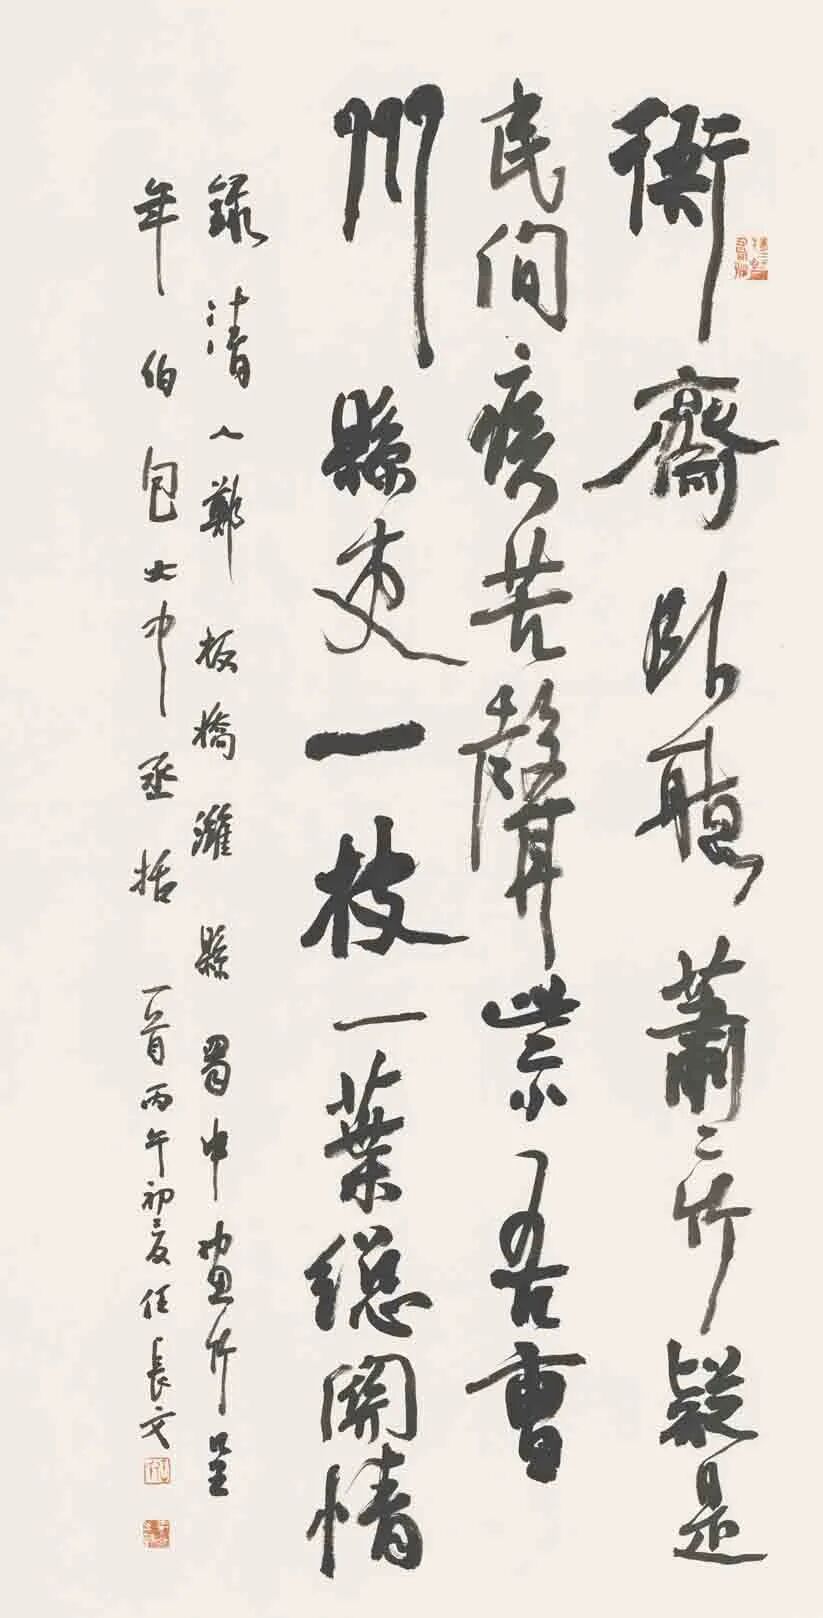 衙齋卧聽蕭〻竹疑是
民間疾苦聲些小吾曹
州縣吏一枝一葉總關情
錄清人鄭板橋濰縣署中畫竹呈
年伯包大中丞括一首丙午初夏任長文